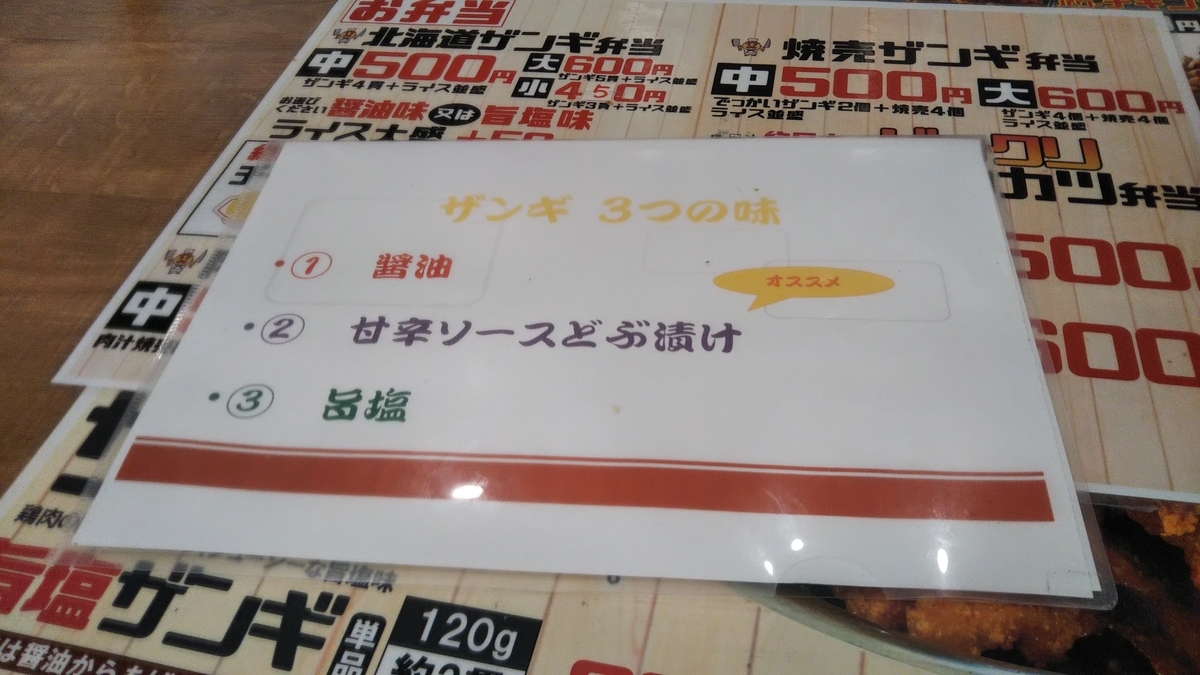 お弁当
北海道ザンギ弁当
中500円 大600円
ザンギ4貢+ライス並盛 ザンギ5貢+ライス並盛
小450円
ザンギ3貢+ライス並盛
お選びください 醤油味又は旨塩味
ライス大盛
焼売ザンギ弁当
中500円 大600円
でっかいザンギ2個+焼売4個
ライス並盛
ザンギ4個+焼売4個
ライス並盛
クリ
カツ弁当
500
500
中
肉汁焼
ザンギ 3つの味
・① 醤油
オススメ
・② 甘辛ソースどぶ漬け
・③ 旨塩
鶏肉の
な旨塩味
旨塩ザンギ
単品
120g
は醤油から